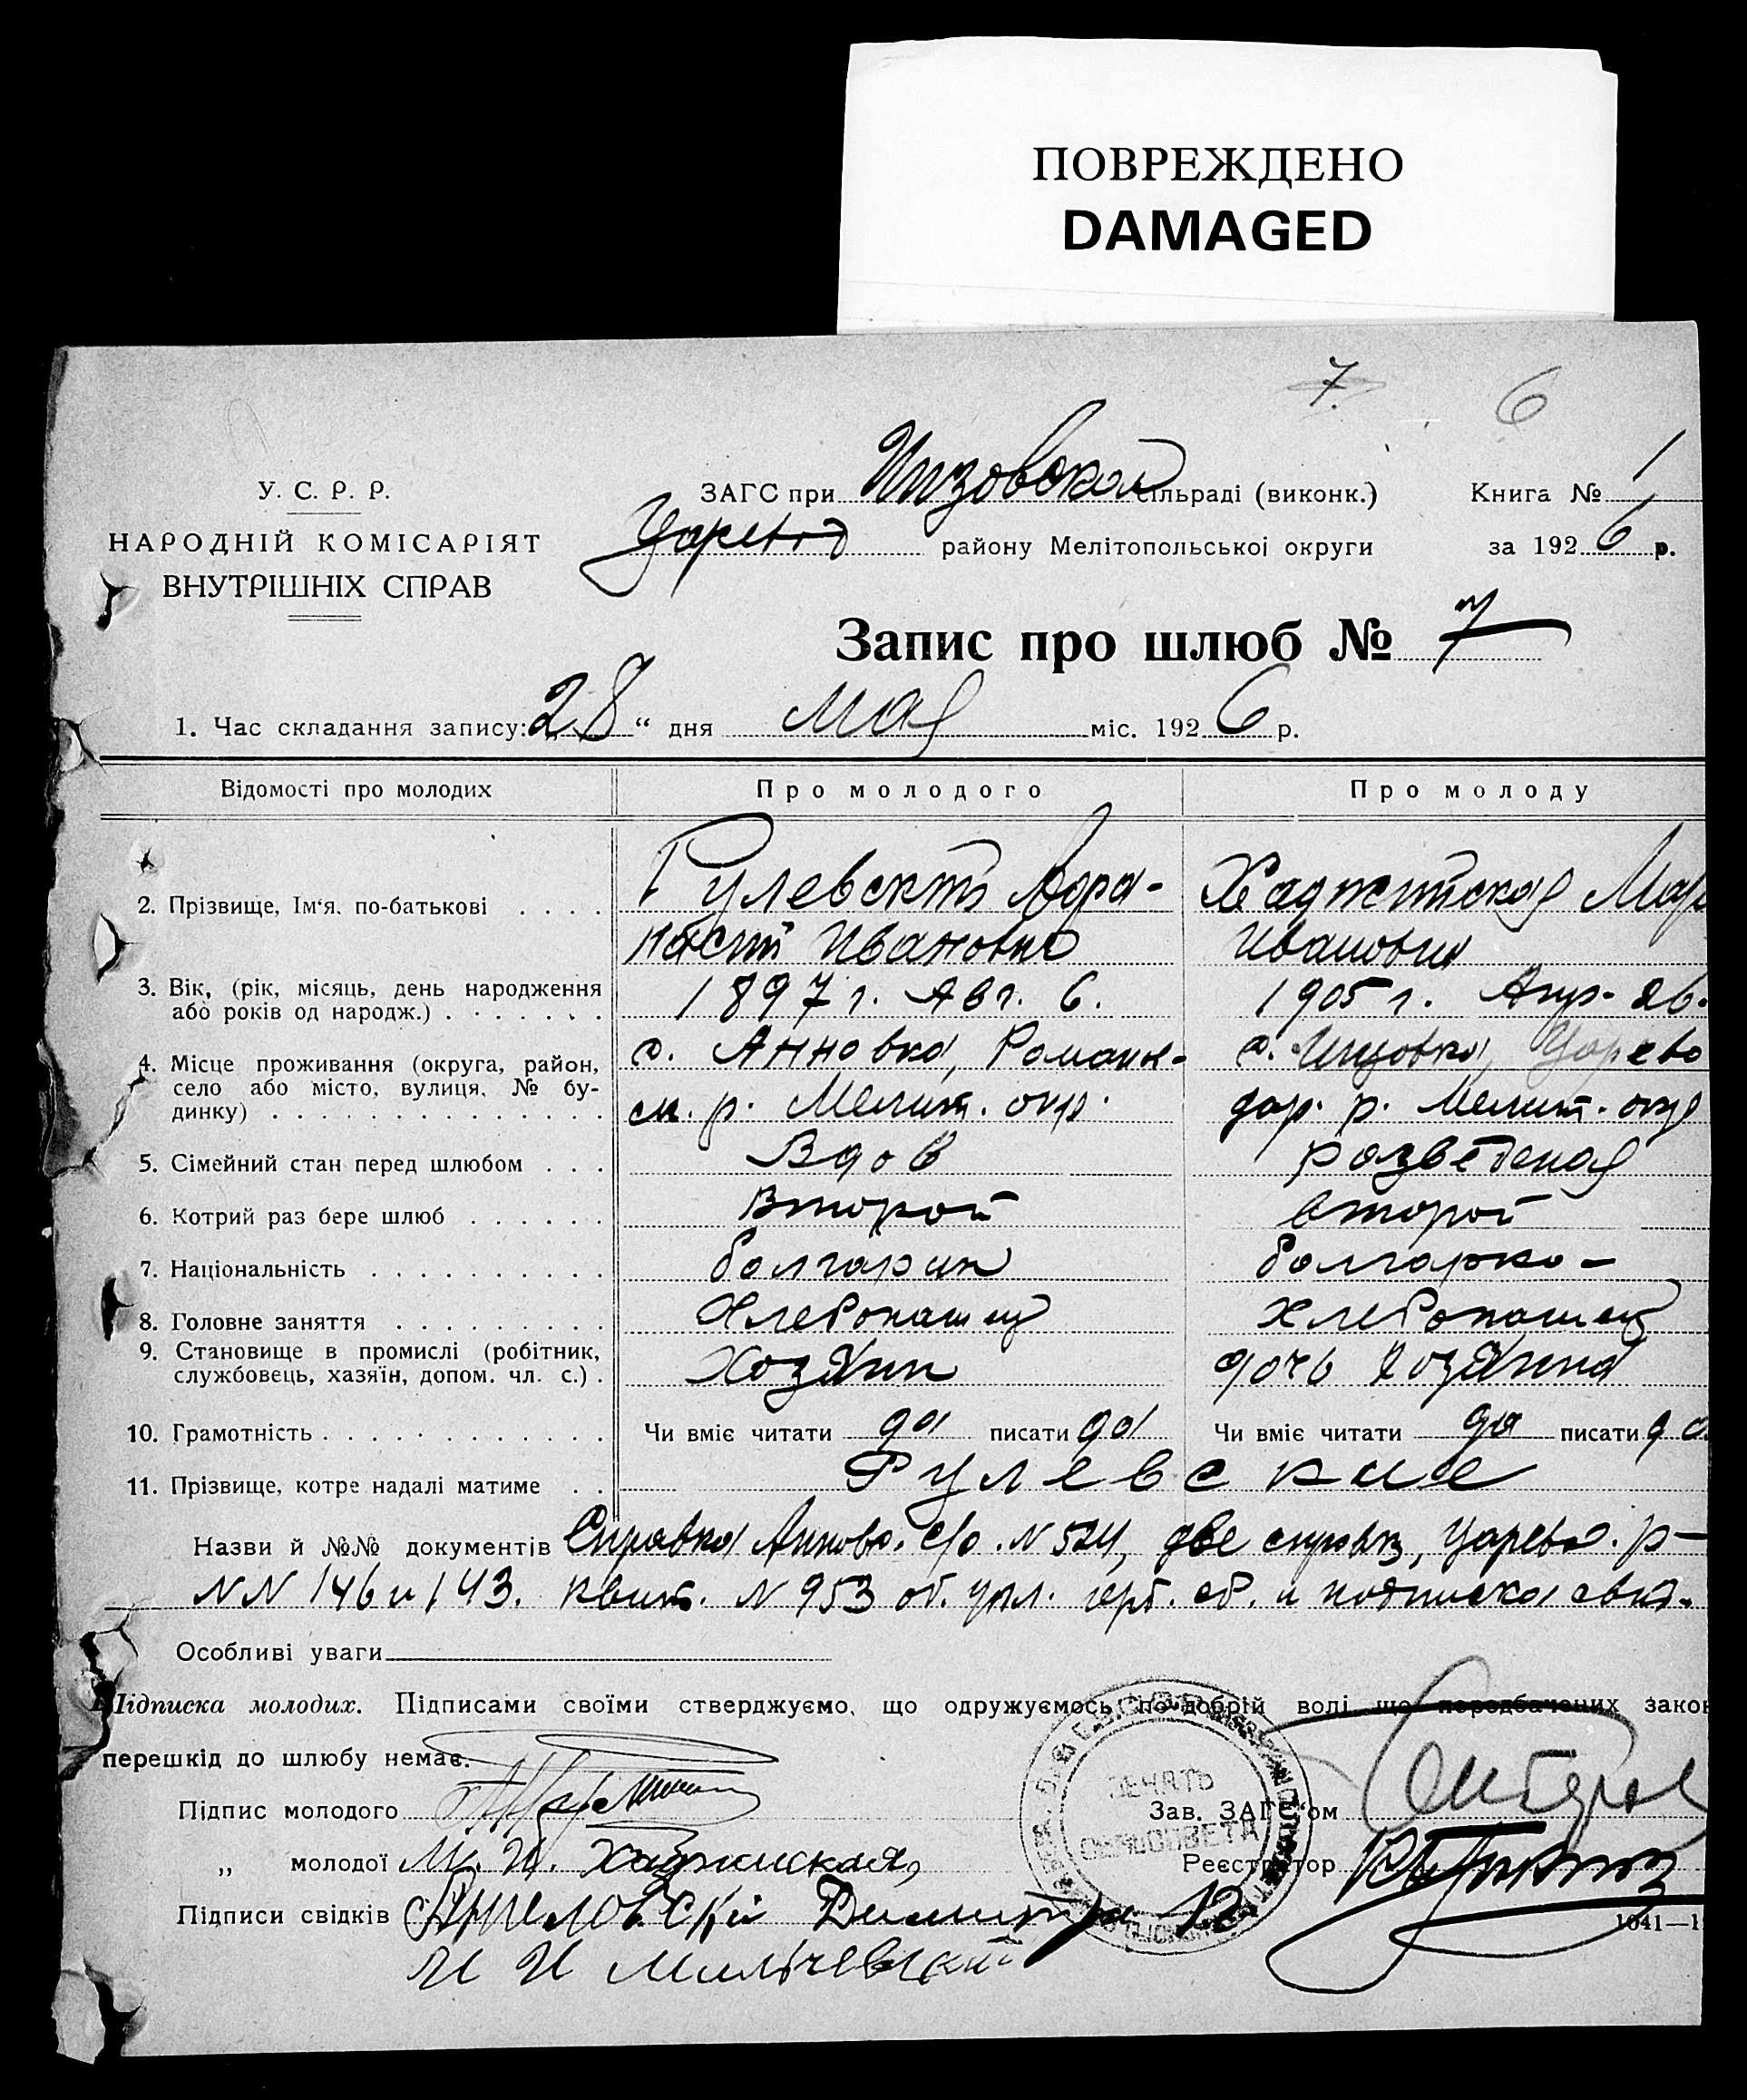 ПОВРЕЖДЕНО
DAMAGED
7. 6
У. С. Р. Р.
НАРОДНІЙ КОМІСАРІЯТ
ВНУТРІШНІХ СПРАВ
ЗАГС при Инзовской сільраді (виконк.) Книга № 1
району Мелітопольської округи за 1926 р.
Запис про шлюб № 7
1. Час складання запису: „28“ дня мая міс. 1926 р.
Відомості про молодих Про молодого Про молоду
2. Прізвище, Ім'я, по-батькові . . . . Гулевский Афа- Хаджийская Мар
насий Иванович Ивановна
3. Вік, (рік, місяць, день народження 1897 г. Авг. 6. 1905 г. Апр. 26.
або років од народж.) . . . . . . .
4. Місце проживання (округа, район, с. Анновка, Романов- с. Инзовка, Царево
село або місто, вулиця, № бу- м. р. Мелит. окр. дар. р. Мелит. окр
динку) . . . . . . . . . . . . . .
5. Сімейний стан перед шлюбом . . . Вдов разведеная
6. Котрий раз бере шлюб . . . . . . Второй второй
7. Національність . . . . . . . . . . болгарин болгарка -
8. Головне заняття . . . . . . . . . Хлебопашец хлебопашец
9. Становище в промислі (робітник, Хозяин дочь хозяина
службовець, хазяїн, допом. чл. с.) .
10. Грамотність . . . . . . . . . . . . Чи вміє читати да писати да Чи вміє читати да писати да
11. Прізвище, котре надалі матиме . . Гулевские
Назви й №№ документів Справка Анново. с/с. N 524, две справк, Царево. р-
NN 146 и 143. квит. N 953 об. упл. герб. сб. и подписка свид.
Особливі уваги
Підписка молодих. Підписами своїми стверджуємо, що одружуємось по добрій волі що передбачених закон
перешкід до шлюбу немає.
Підпис молодого Зав. ЗАГС'ом
„ молодої М. И. Хаджийская, Реєстратор
Підписи свідків Ангеловски Димитра
И И Миличевский
1041—1